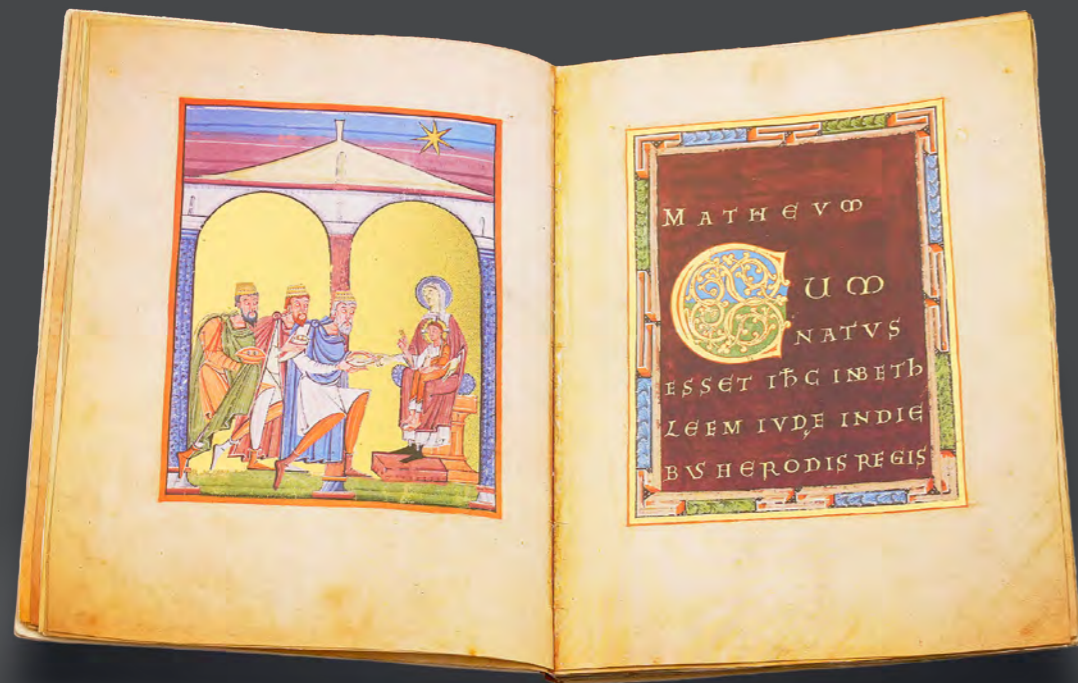 MATHEVM
CUM
NATVS
ESSET IħC INBETh
LEEM IVDĘ INDIE
BVS HERODIS REGIS